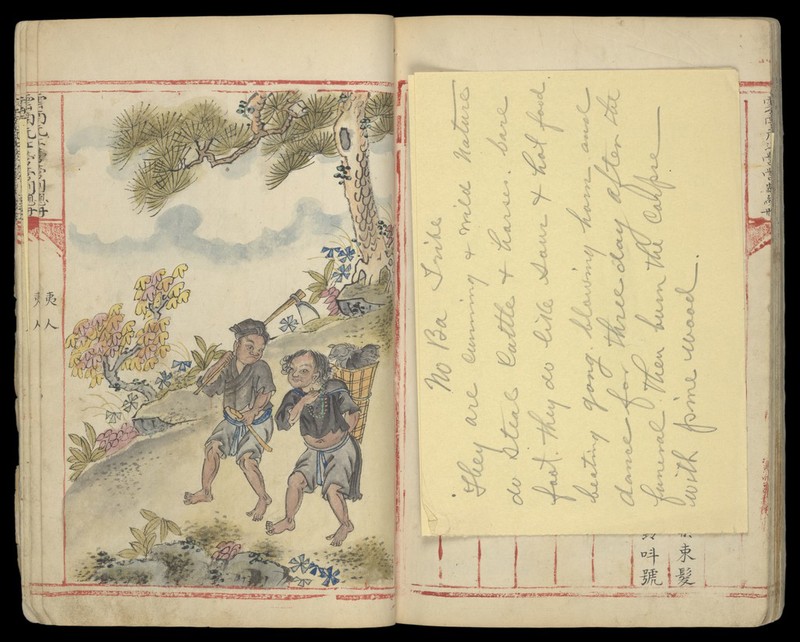 夷人
No Ba Tribe
They are cunning & mild Nature
do steal Cattle & horses. bare
feet. they do like sour & hot food.
beating gong, blowing horn and
dance for three day after the
funeral then burn the
with pine wood.
束髮
呌號